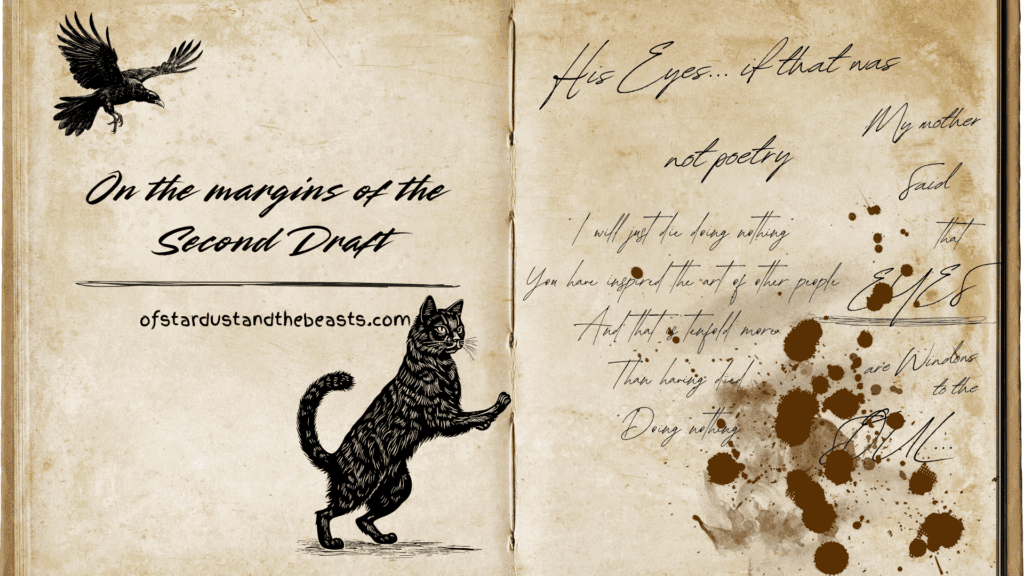 On the margins of the
Second Draft
ofstardustandthebeasts.com
His Eyes... if that was
not poetry
I will just die doing nothing
You have inspired the art of other people
And that is tenfold more
Than having died
Doing nothing
My mother
Said
that
EYES
are Windows
to the
SOUL....